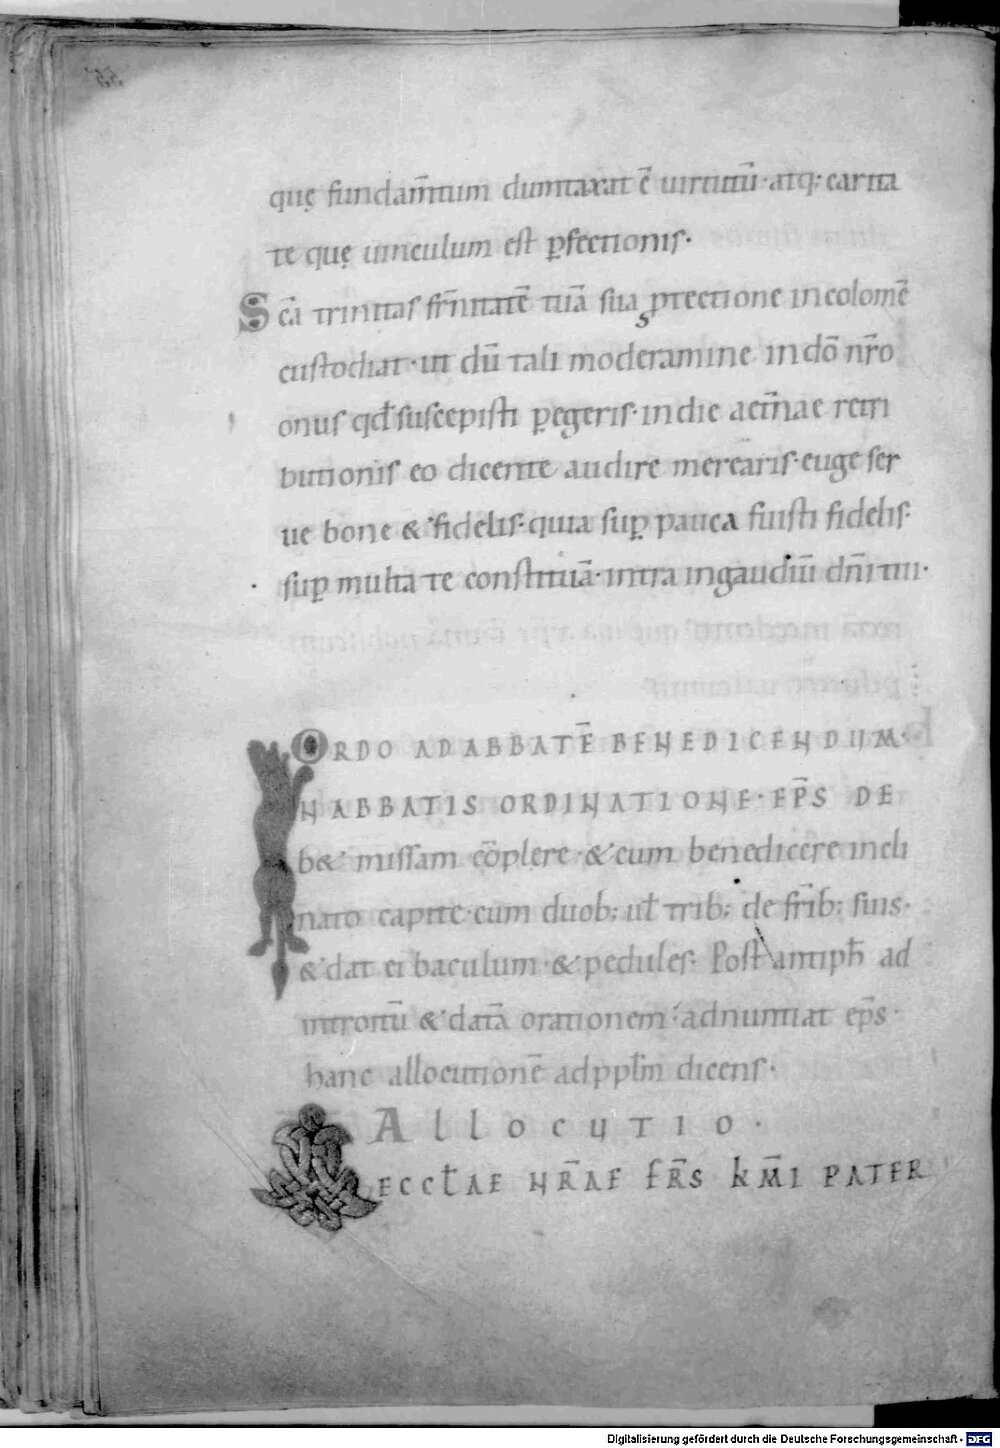 quę fundam̅tum dumtaxat ē uirtutū· atq; carita
te quę uinculum est ꝑfectionis·
Sc̅a trinitas fr̅nitatē tuā sua ꝓtectione incolomē
custodiat· ut dū tali moderamine in dō nr̅o
onus qđ suscepisti ꝑegeris· in die aet̅nae retri
butionis eo dicente audire merearis· euge ser
ue bone & fidelis· quia suꝑ pauca fuisti fidelis·
suꝑ multa te constituā· intra in gaudiū dn̅i tui·
ORDO AD ABBATĒ BENEDICENDUM·
IN ABBATIS ORDINATIONE· EP̅S DE
b& missam cōplere· & eum benedicere incli
nato capite cum duob; uł trib; de fr̅ib; suis·
& dat ei baculum· & pedules· Post antiph̅ ad
introitū & datā orationem adnuntiat ep̅s·
hanc allocutionē ad ppl̅m dicens·
ALLOCUTIO·
ECCŁAE NR̅AE FR̅S KM̅I PATER
Digitalisierung gefördert durch die Deutsche Forschungsgemeinschaft - DFG